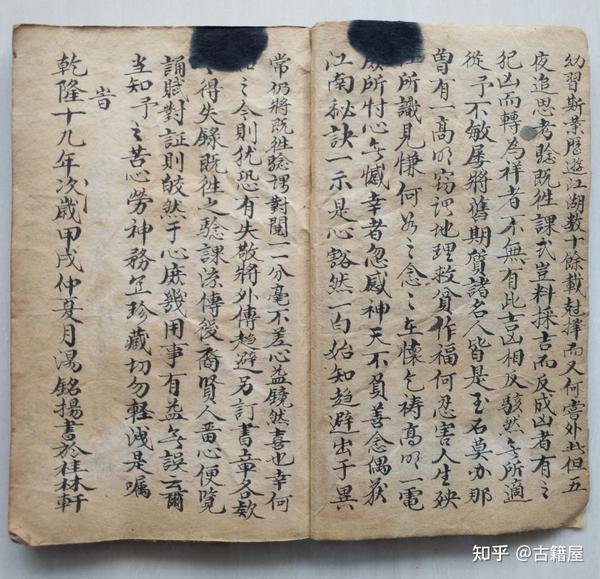 幼習斯業歷遊江湖数十餘載尅擇而又何嘗外此但五
夜追思考驗既徃課式豈料採吉而反成凶者有之
犯凶而轉為祥者不無有此吉凶相反駭然無所適
從予不敏屡將舊期質諸名人皆是玉石莫办那
曽有一高明窃謂地理救貧作福何忍害人生殃
所識見慊何如之念之在懷乞祷高明一電
所忖心無憾幸者忽感神天不負善念偶获
江南秘訣一示是心豁然一白始知趋避出于異
常仍將既徃驗謂對閲一一分毫不差心益鏡然喜也幸何
之今則犹恐有失敬將外傳趋避另訂書章各欵
得失錄既徃之驗課流傳後裔賢人畱心便覧
誦賦對証則皎然于心庶幾用事有益無誤云爾
当知予之苦心勞神務宜珍藏切勿輕洩是嘱
旹
乾隆十九年次歲甲戌仲夏月湯銘揚書於桂林軒
知乎 @古籍屋